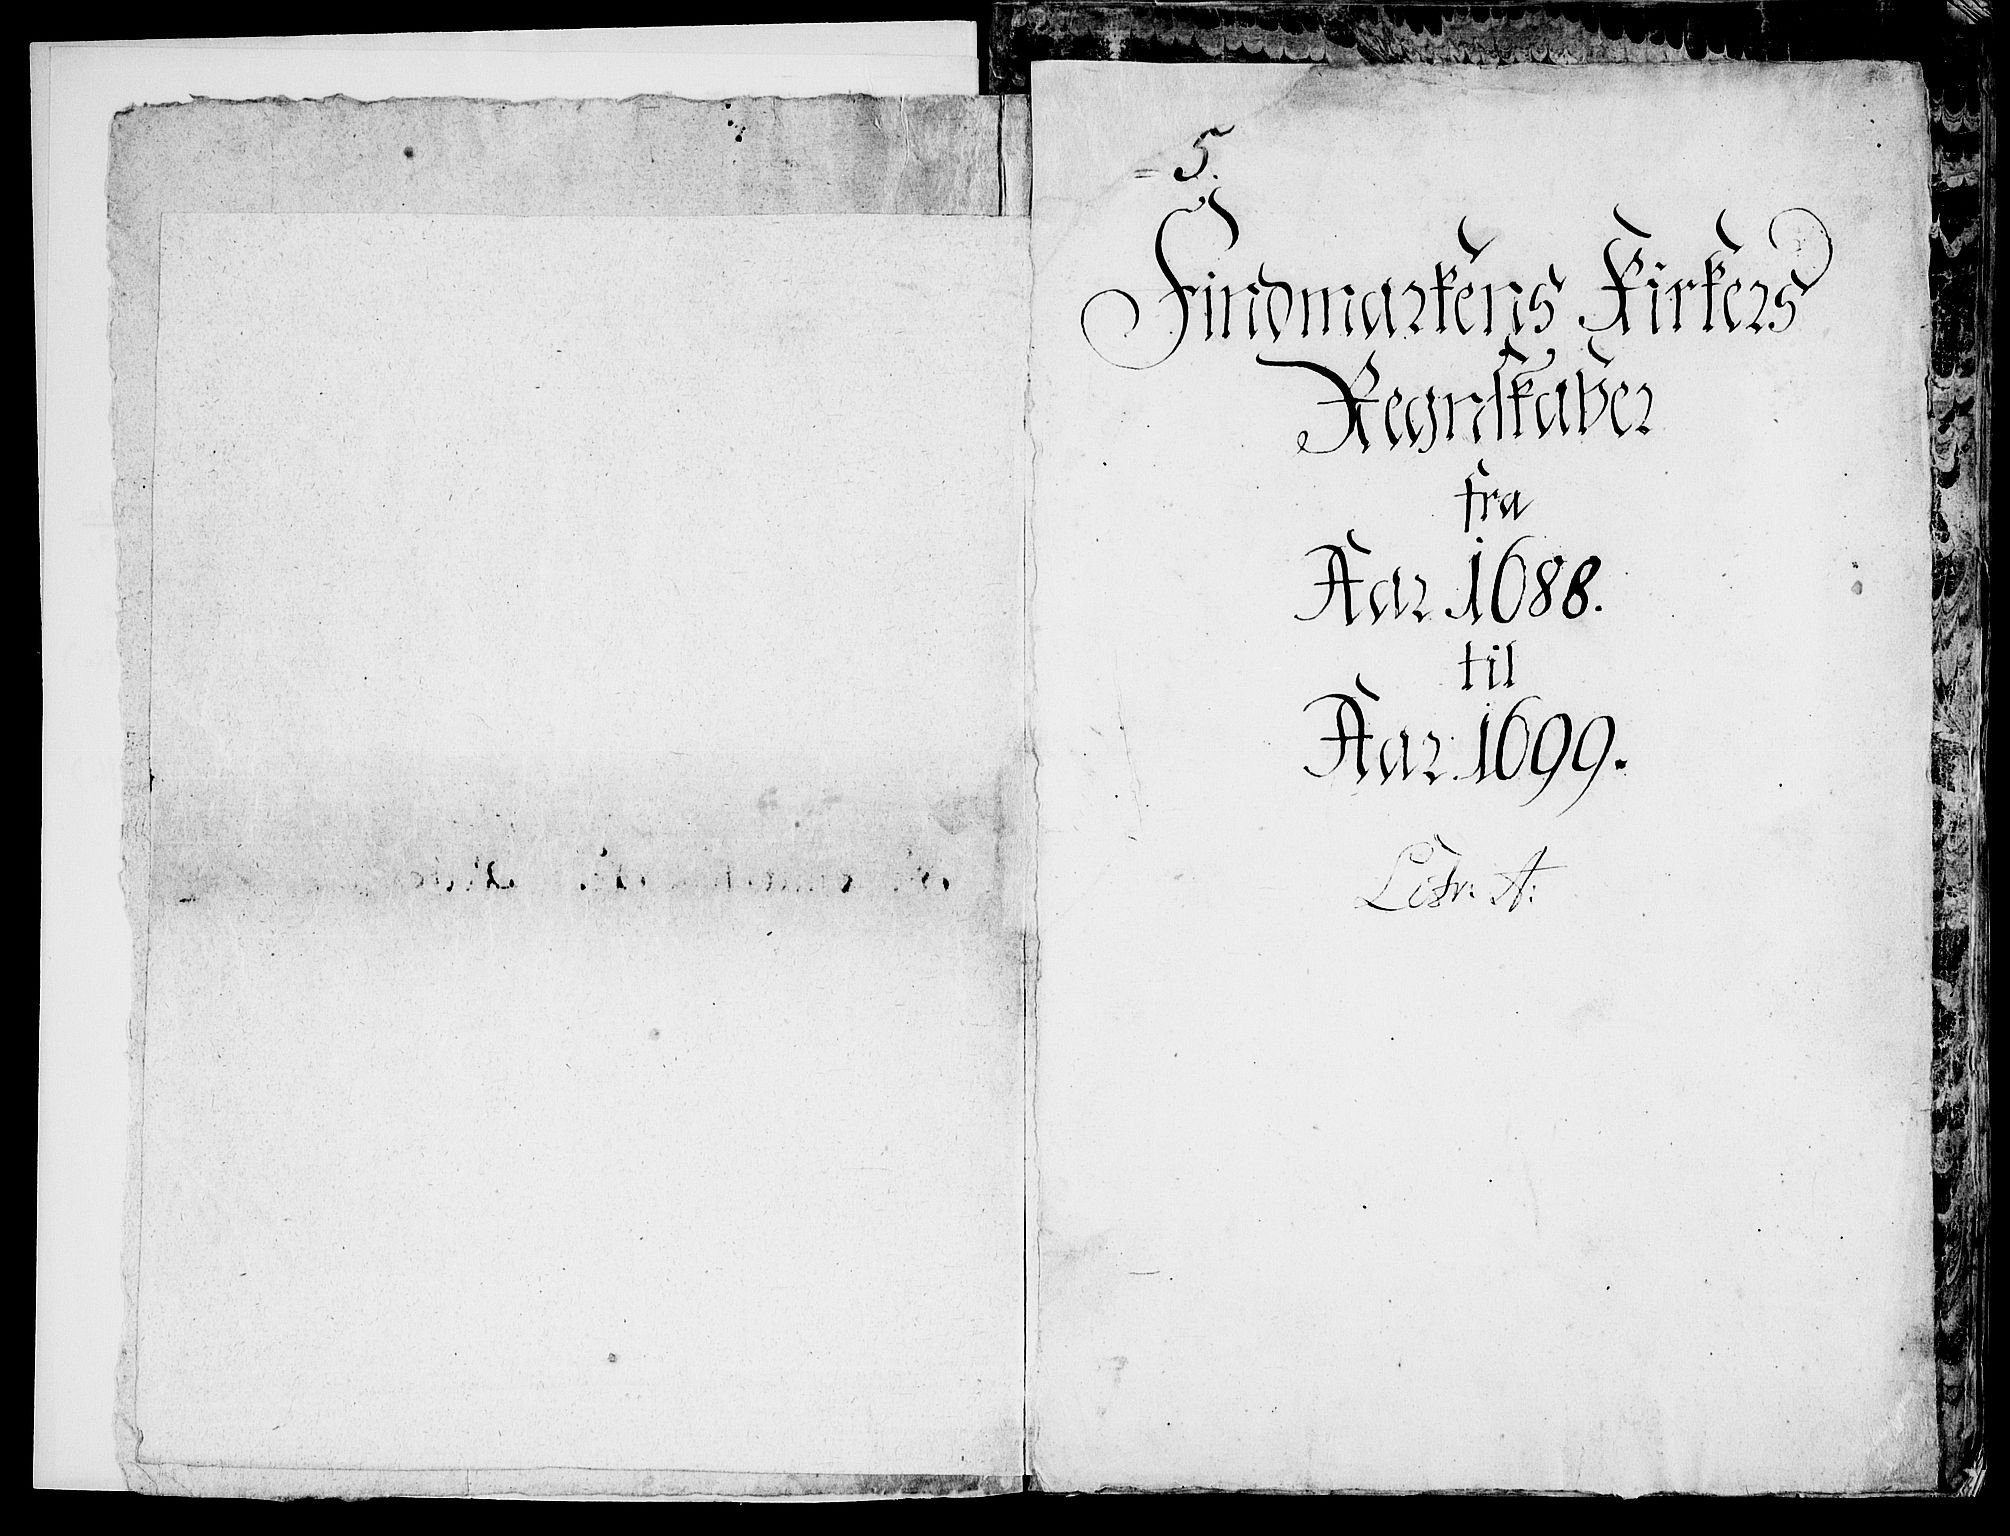 = 5.
Findmarkens Kirkers
Regnskaber
fra
Aar 1688.
til
Aar 1699.
Litr: A: